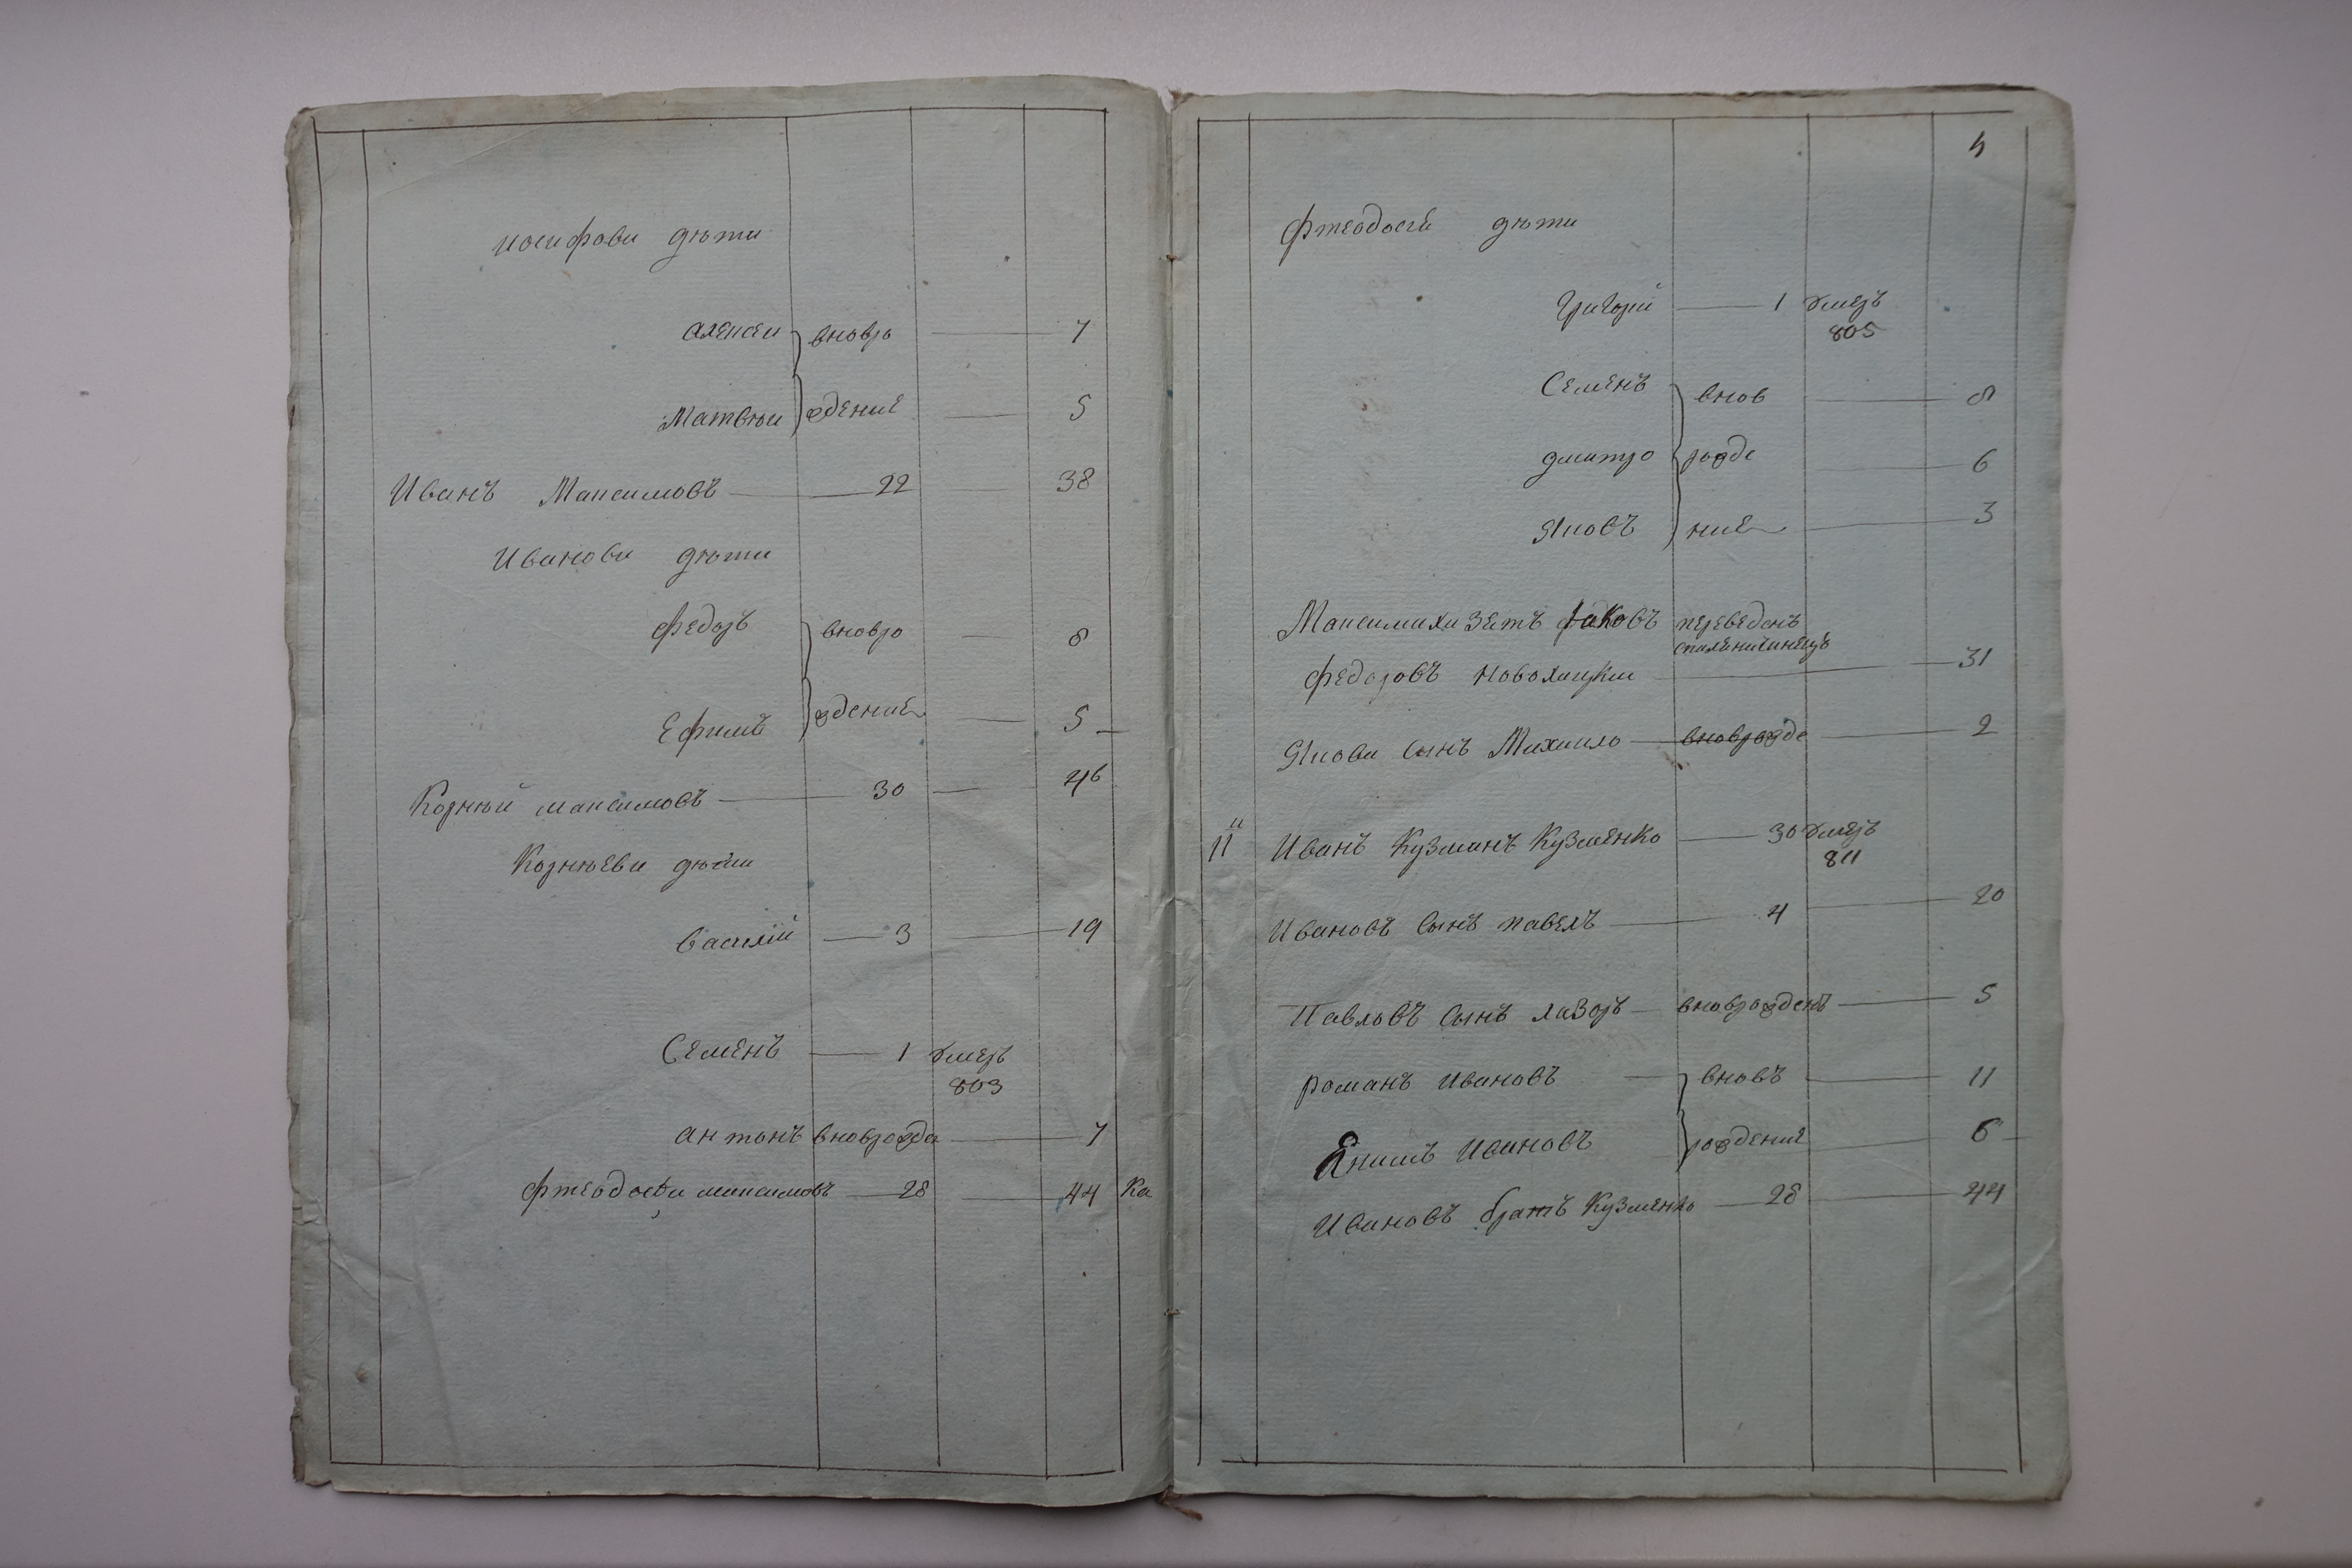 иосифови дѣти
алексеи вновро 7
Матвѣи ждение 5
Иванъ Максимовъ 22 38
Иванови дѣти
федоръ вновро 8
Ефимъ ждение 5
Корнѣй максимовъ 30 46
Корнѣеви дѣти
василій 3 19
Семенъ 1 умеръ
803
антонъ вноврожде 7
Фтеодосеи максимовъ 28 44
4
Фтеодосей дѣти
Григорій 1 умеръ
805
Семенъ внов 8
дмитро рожде 6
Яковъ ние 3
Максимихи зетъ Яковъ переведенъ
федоровъ 31
Якови сынъ Михаило вноврожде 2
11 Иванъ Кузминъ Кузменко 30 умеръ
811
Ивановъ сынъ павелъ 4 20
Павловъ сынъ лазоръ вноврожденъ 5
романъ ивановъ вновъ 11
Екимъ ивановъ рождение 6
Ивановъ братъ Кузменко 28 44